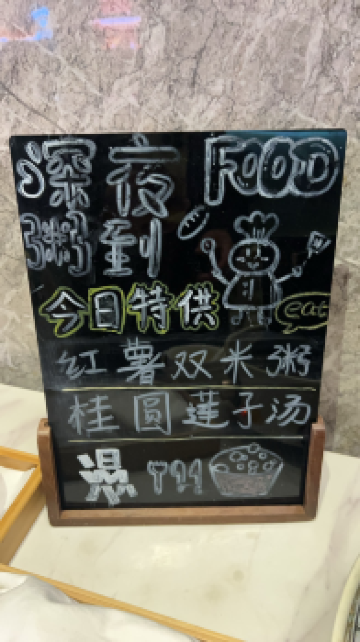 深夜 FOOD
粥到
今日特供
eat
红薯双米粥
桂圆莲子汤